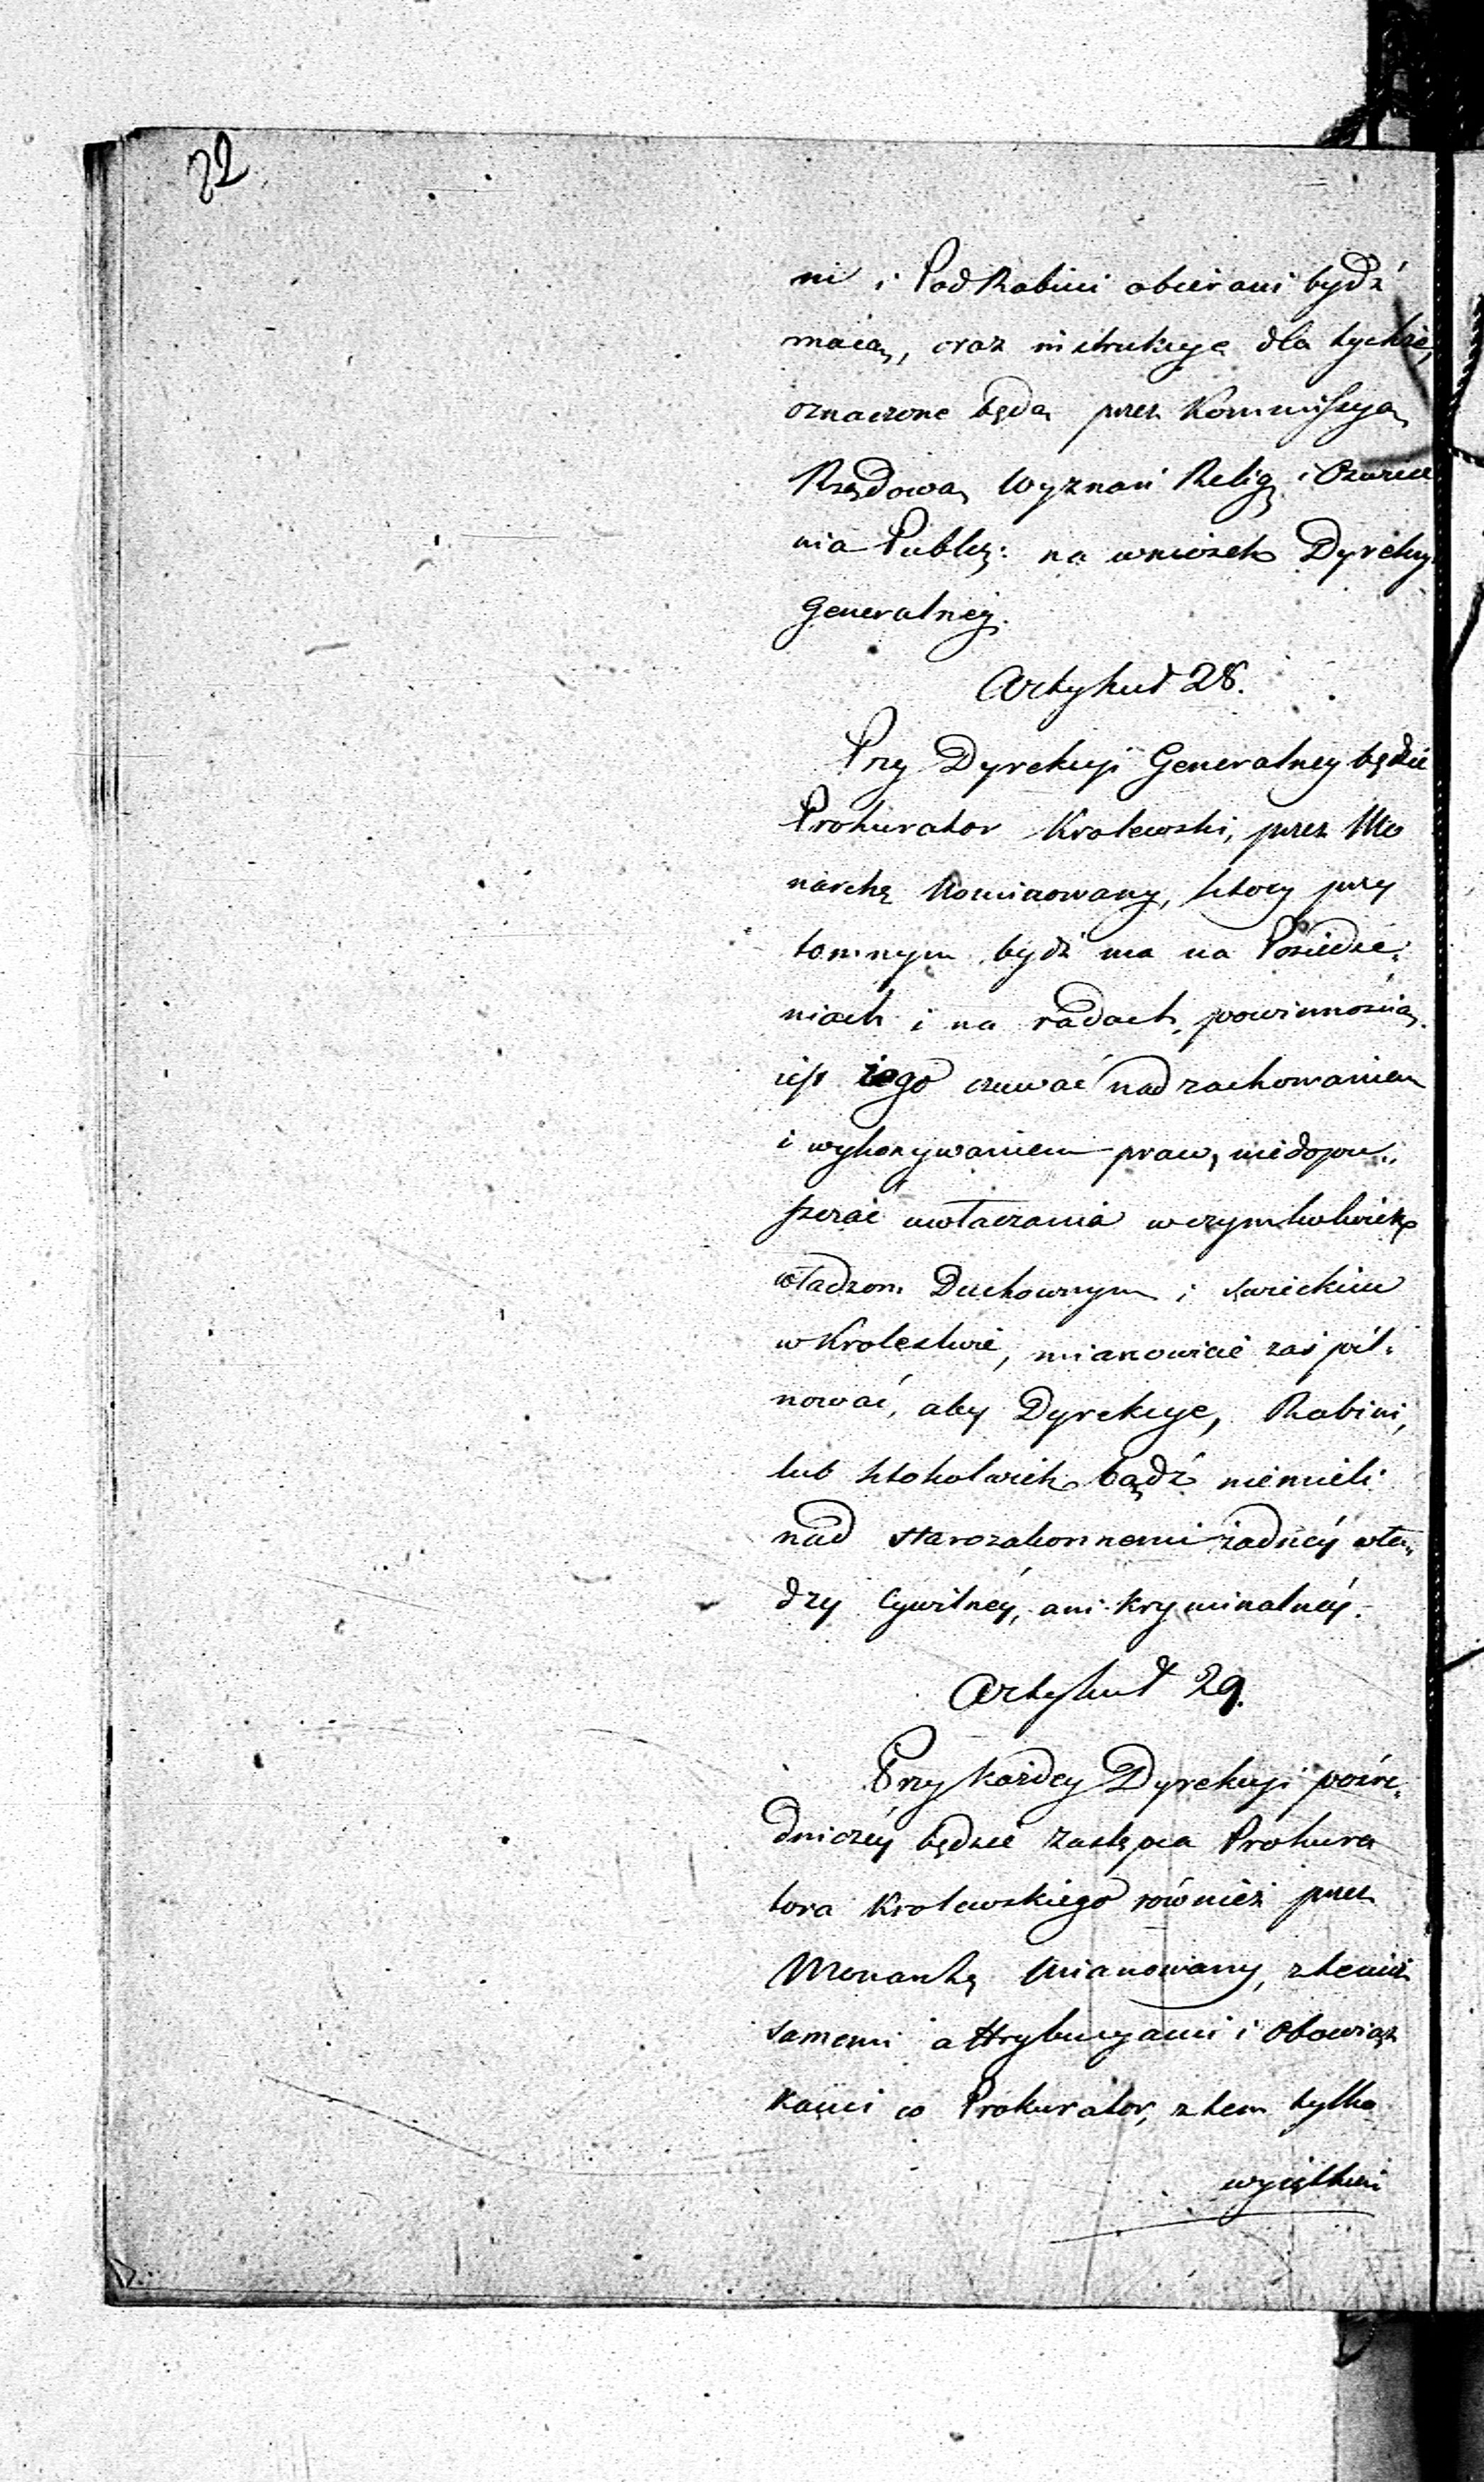 22
ni i PodRabini obierani bydź
maią, oraz instrukcye dla tychże,
oznaczone będą przez Kommissyą
Rządową Wyznań Relig: i Oświece
nia Public: na wniosek Dyrekcyi
Generalney.
Artykuł 28.
Przy Dyrekcyi Generalney będzie
Prokurator Krolewski, przez Mo
narchę Nominowany, ktory przy
tomnym bydź ma na Posiedze„
niach i na radach, powinnością
iest iego czuwać nad zachowaniem
i wykonywaniem praw, niedopu„
szczać uwłaczania wczymkolwiek
władzom Duchownym i swieckim
w Krolestwie, mianowicie zaś pil„
nować, aby Dyrekcye, Rabini,
lub ktokolwiek bądź niemieli
nad starozakonnemi żadnéy wła„
dzy Cywilnéy, ani kryminalnéy.
Artykuł 29.
Przy każdey Dyrekcyi pośre„
dniczéy będzie zastępca Prokura
tora Krolewskiego również przez
Monarchę Mianowany, z temiż
samemi attrybucyami i obowiąz
kami co Prokurator, z tem tylko
wyiątkiem